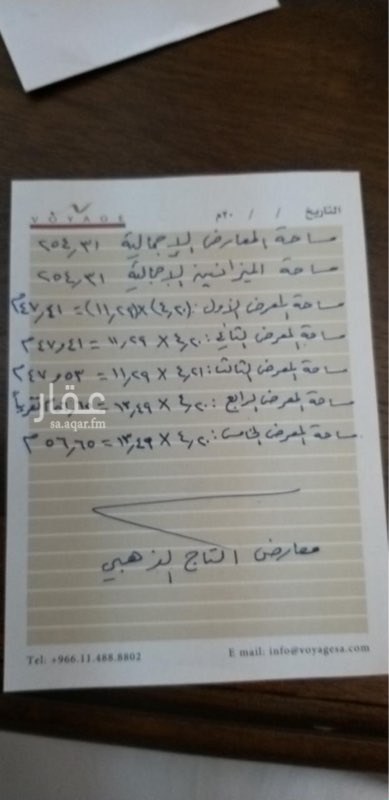 VOYAGE
التاريخ / / ٢٠م
مساحة المعارض الإجمالية ٢٥٤,٣١
مساحة الميزانين الإجمالية ٢٥٤,٣١
مساحة المعرض الأول: (٤,٢٠)×(١١,٢٩) = ٤٧,٤١م
مساحة المعرض الثاني: ٤,٢٠ × ١١,٢٩ = ٤٧,٤١م
مساحة المعرض الثالث: ٤,٢١ × ١١,٢٩ = ٤٧,٥٣م
مساحة المعرض الرابع: ٤,٢٠ × ١٣,٤٩ = تقريباً
مساحة المعرض الخامس: ٤,٢٠ × ١٣,٤٩ = ٥٦,٦٥م
عقار
sa.aqar.fm
معارض التاج الذهبي
Tel: +966.11.488.8802
E mail: info@voyagesa.com